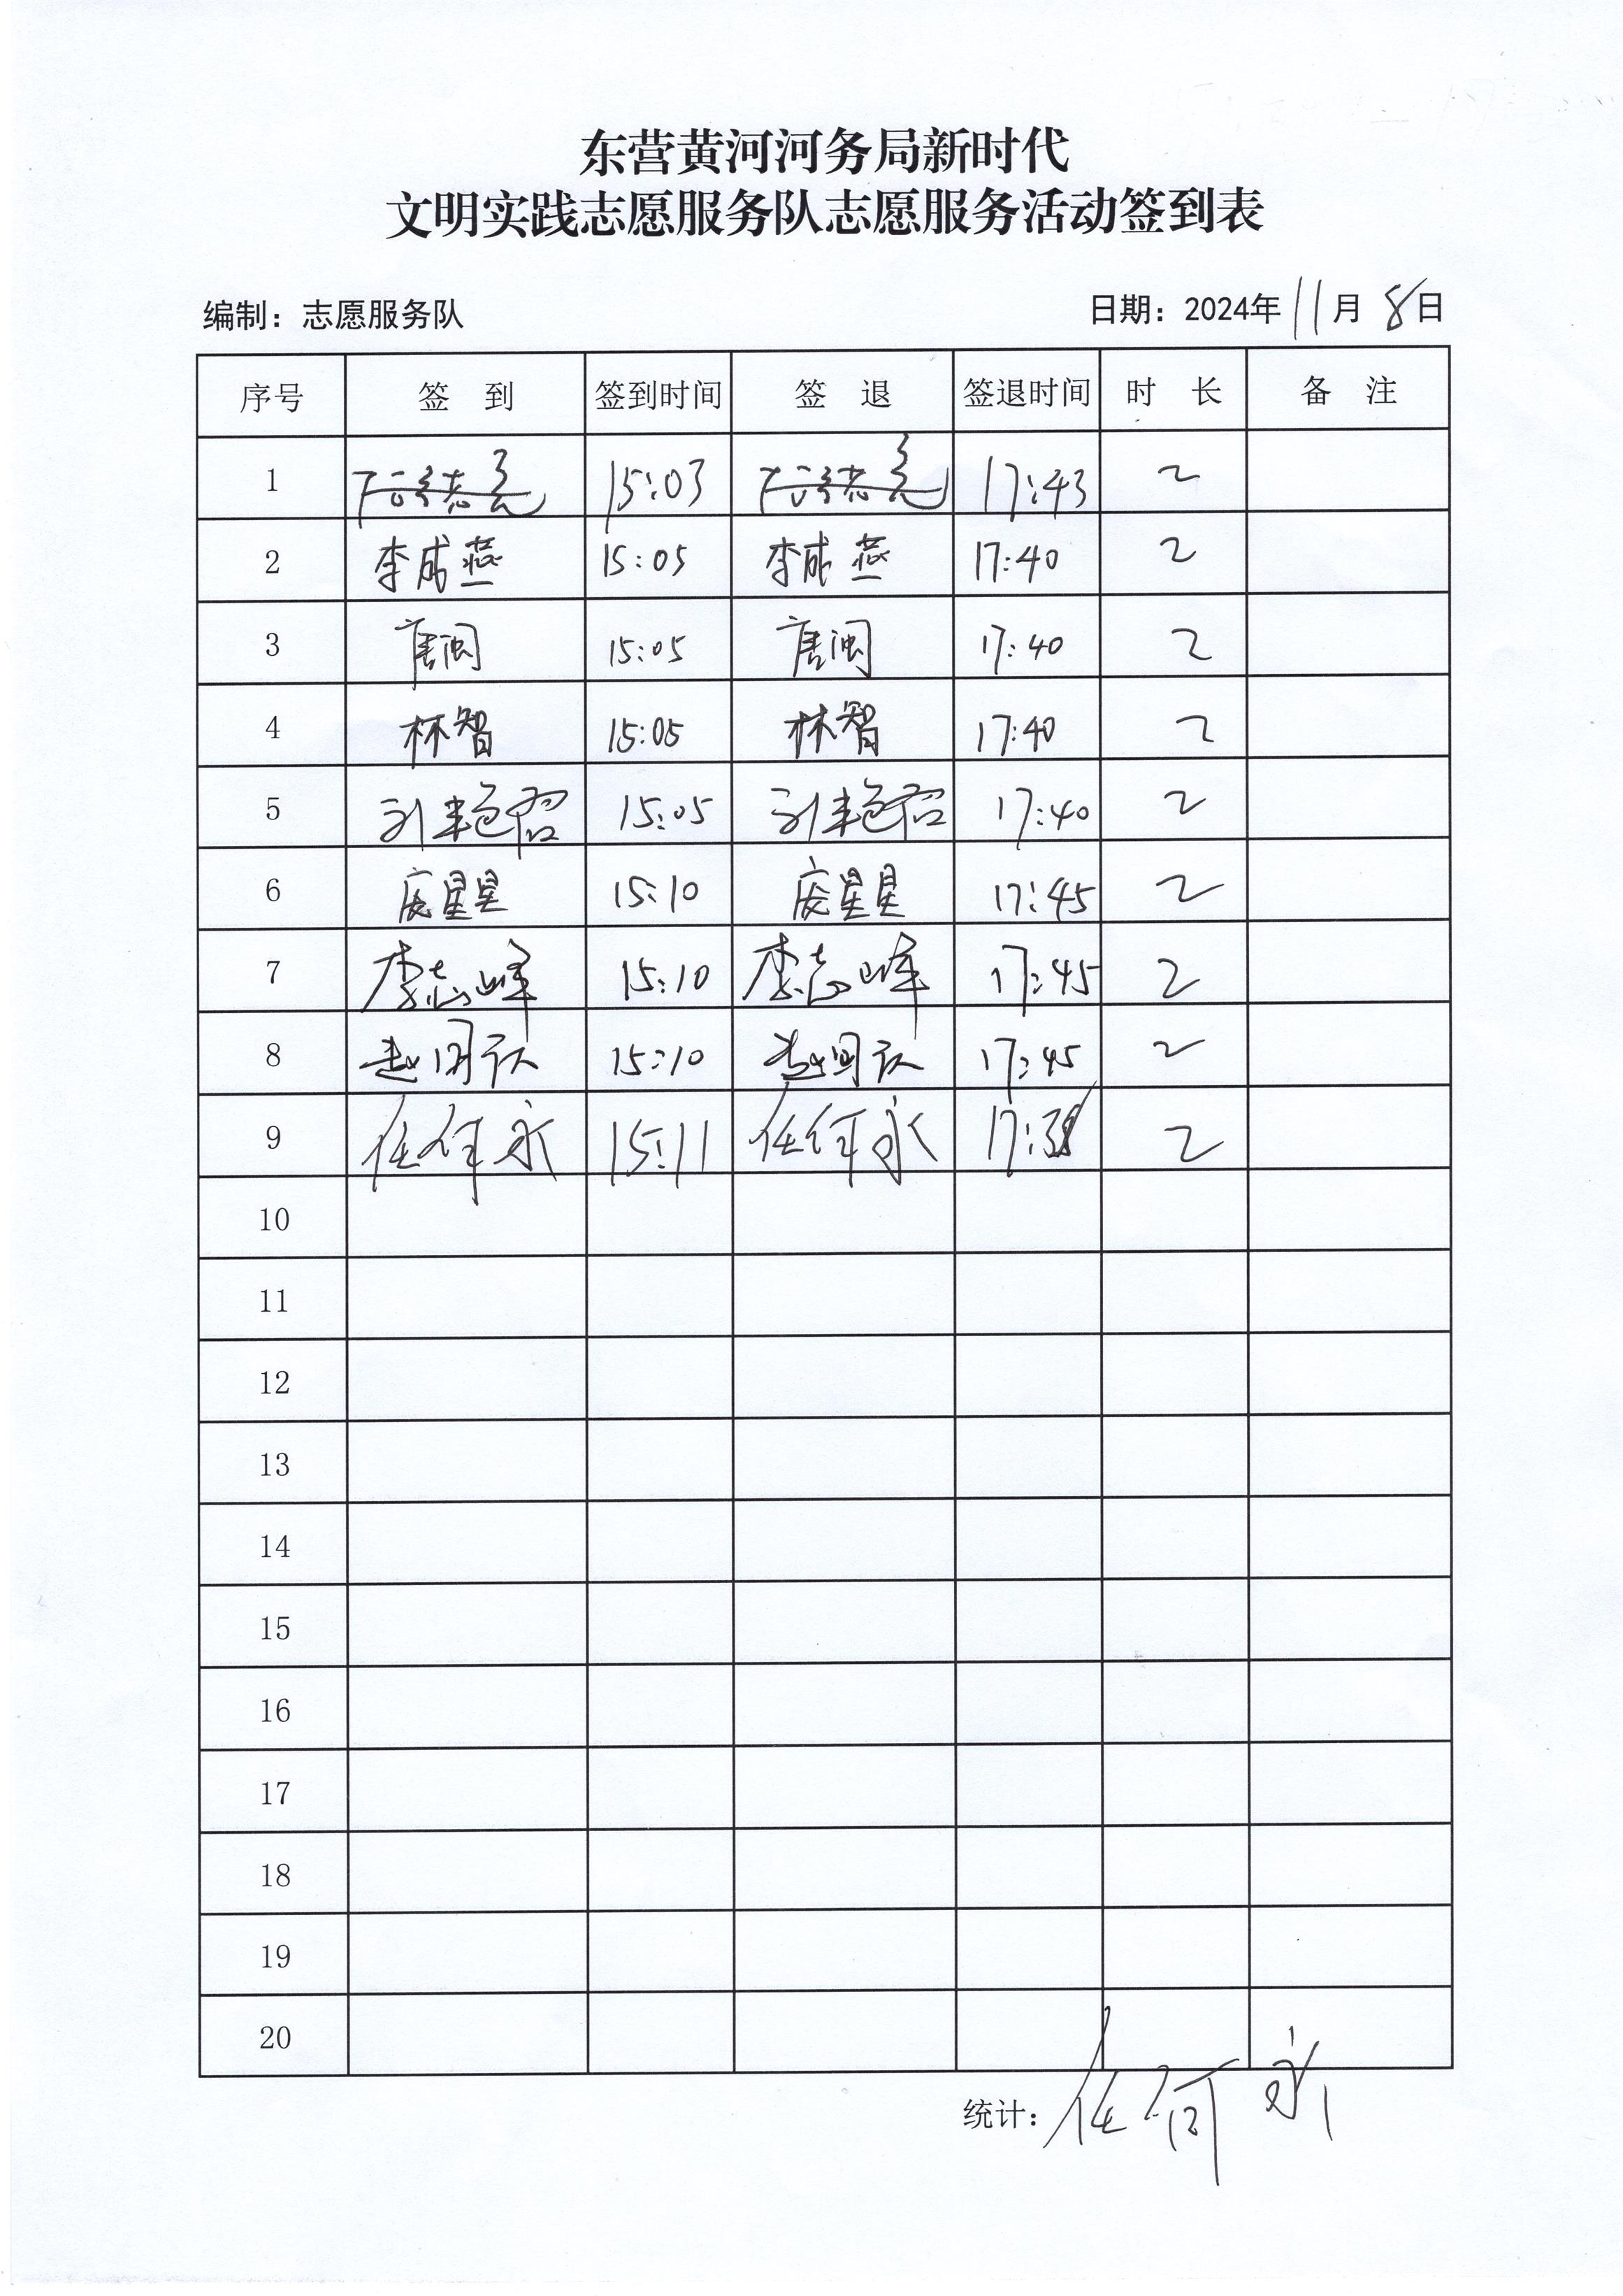 东营黄河河务局新时代
文明实践志愿服务队志愿服务活动签到表
编制：志愿服务队 日期：2024年11月8日
序号 签到 签到时间 签退 签退时间 时长 备注
1 15:03 17:43 2
2 李成燕 15:05 李成燕 17:40 2
3 唐闽 15:05 唐闽 17:40 2
4 林智 15:05 林智 17:40 2
5 刘艳召 15:05 刘艳召 17:40 2
6 庞星星 15:10 庞星星 17:45 2
7 李志峰 15:10 李志峰 17:45 2
8 赵 15:10 赵 17:45 2
9 任何永 15:11 任何永 2
10
11
12
13
14
15
16
17
18
19
20
统计：任何永